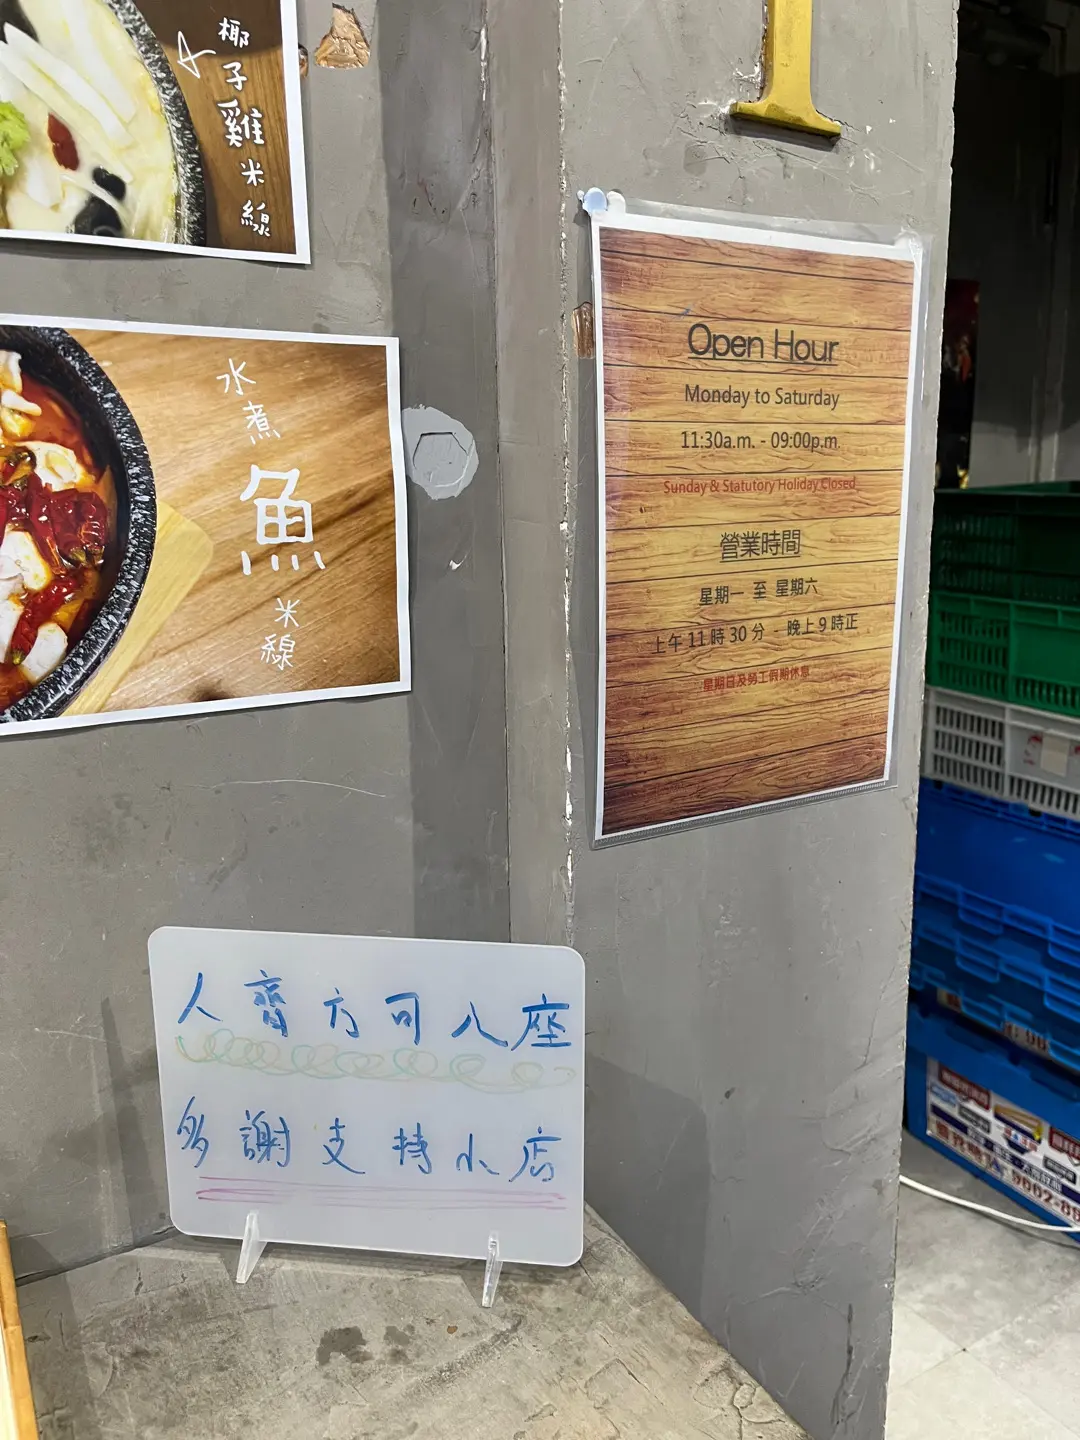 椰子雞米線
水煮魚米線
Open Hour
Monday to Saturday
11:30a.m. - 09:00p.m.
Sunday & Statutory Holiday Closed
營業時間
星期一 至 星期六
上午 11 時 30 分 - 晚上 9 時正
星期日及勞工假期休息
人齊方可入座
多謝支持小店